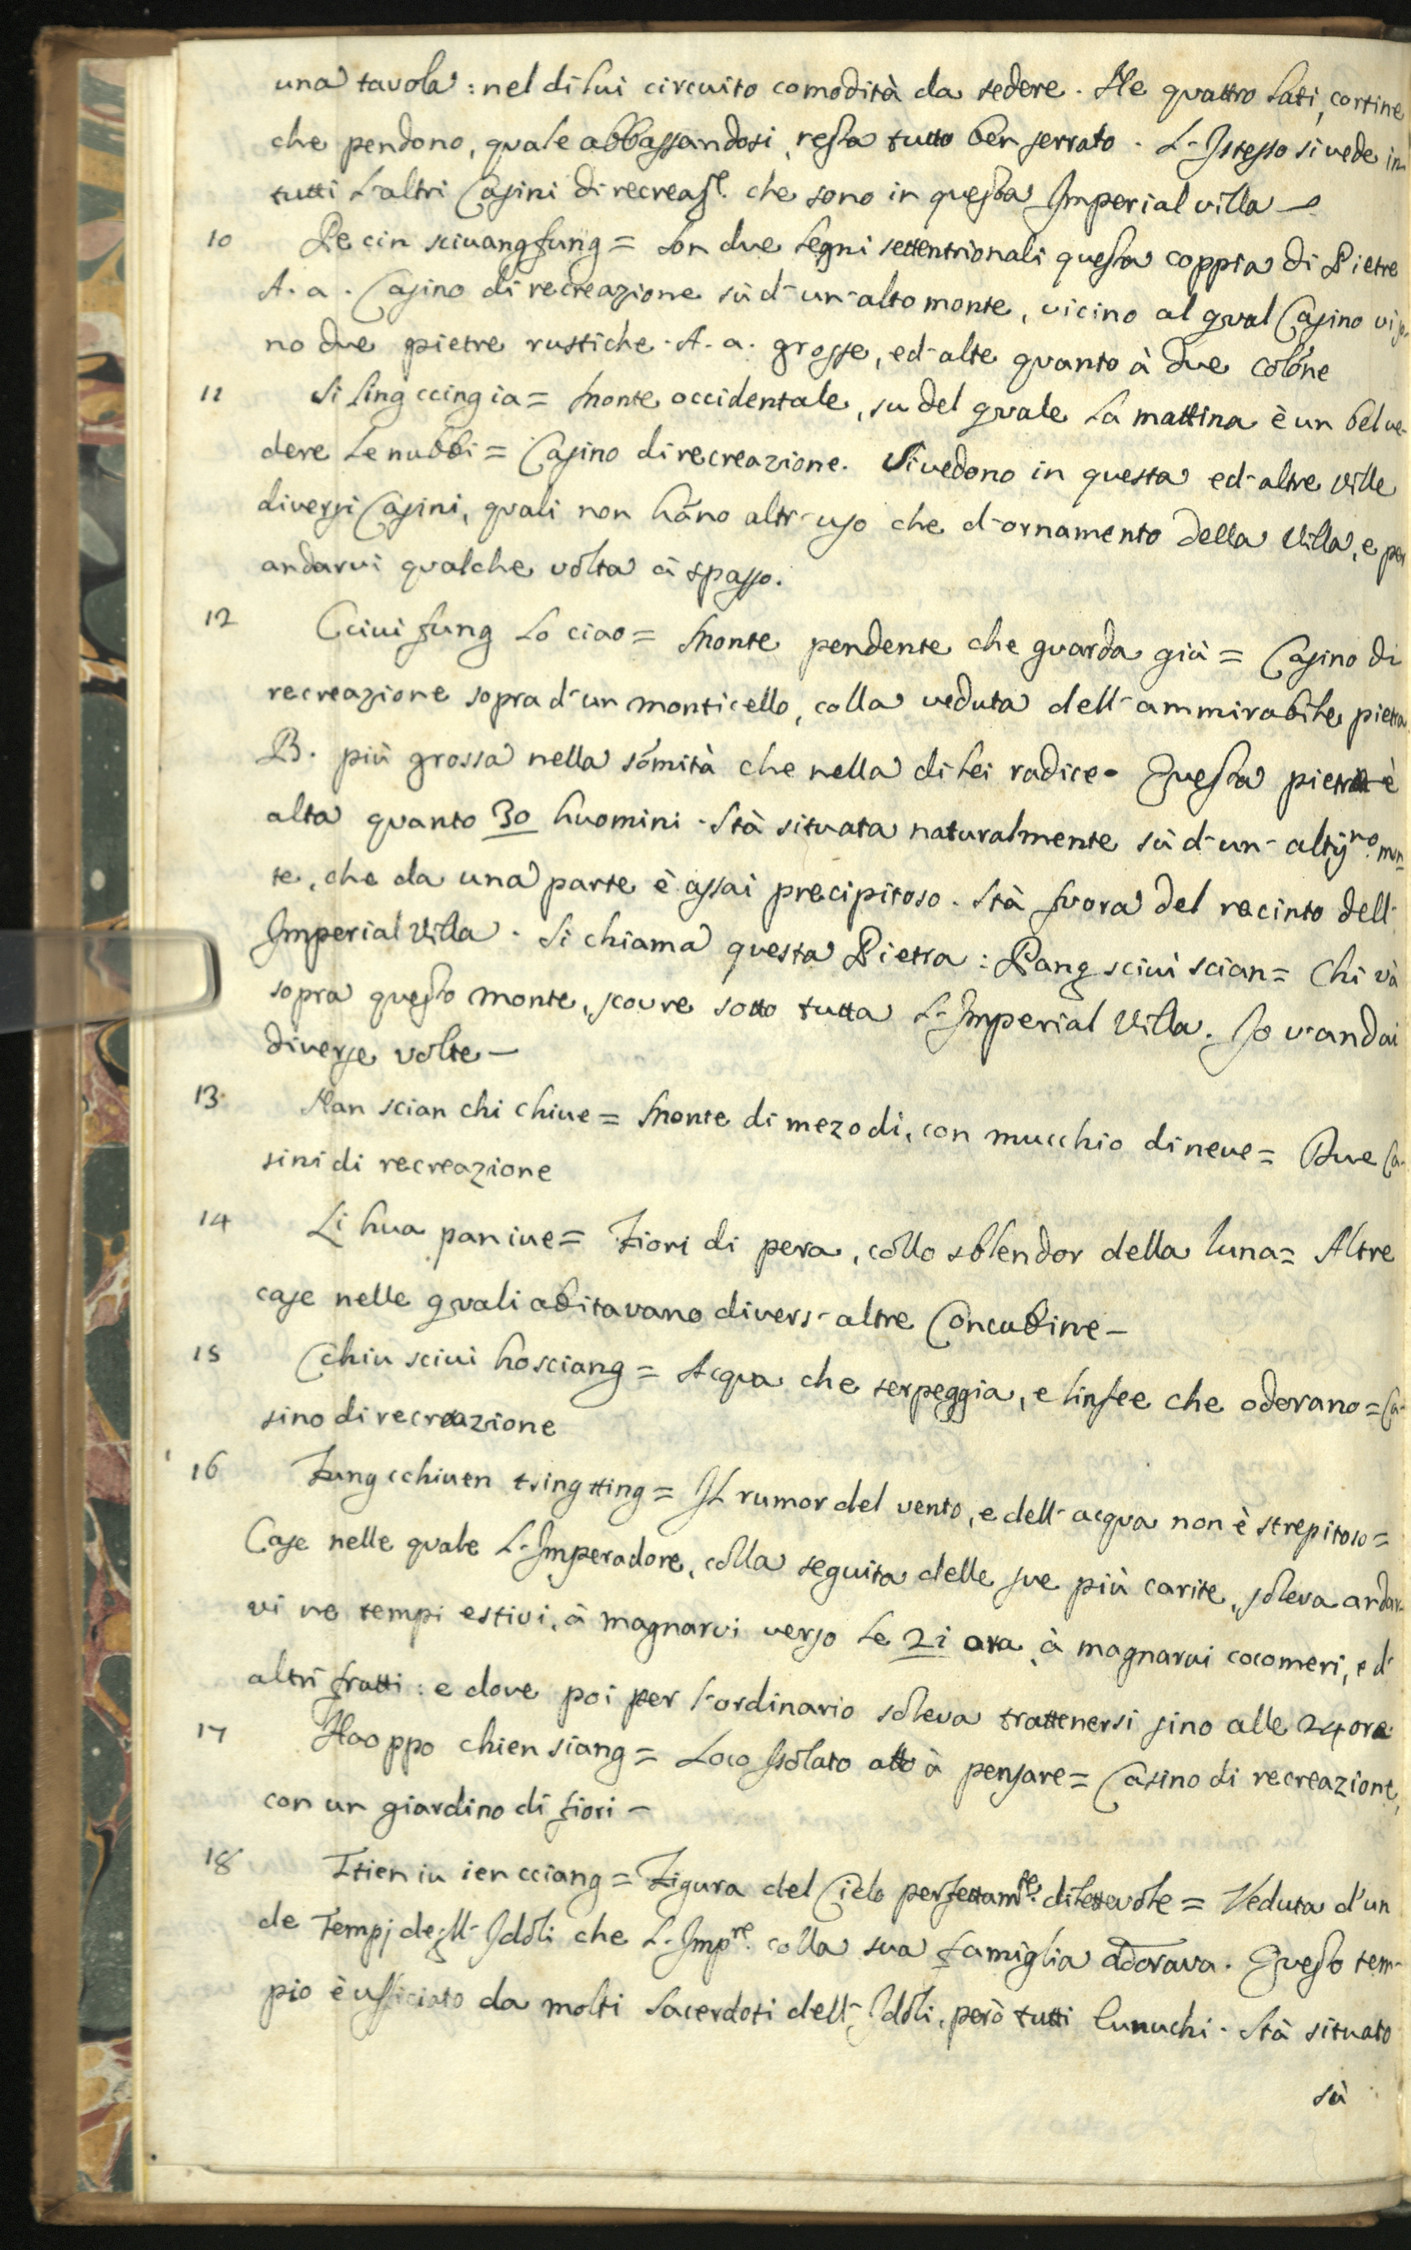 una tavola: nel di lui circuito comodità da sedere. Ne quattro lati, cortine
che pendono, quale abbassandosi, resta tutto ben serrato. L'Istesso si vede in
tutti l'altri Casini di recreaz.e che sono in questa Imperial villa –
10 Pe cin sciuangfung = Son due segni settentrionali questa coppia di Pietre
A. a. Casino di recreazione sù d'un'alto monte, vicino al qual Casino vi so-
no due pietre rustiche. A. a. grosse, ed'alte quanto à due colōne
11 Si ling ccing ia = Monte occidentale, su del quale la mattina è un bel ve-
dere le nubbi = Casino di recreazione. Si vedono in questa ed'altre ville
diversi Casini, quali non hāno altr'uso che d'ornamento della Villa, e per
andarvi qualche volta à spasso.
12 Cciui fung lo ciao = Monte pendente che guarda giù = Casino di
recreazione sopra d'un monticello, colla veduta dell'ammirabile pietra
B. più grossa nella sōmità che nella di lei radice. Questa pietra è
alta quanto 30 huomini. Stà situata naturalmente sù d'un'altiss.mo mon=
te, che da una parte è assai precipitoso. Stà fuora del recinto dell'
Imperial Villa. Si chiama questa Pietra: Pang sciui scian = Chi và
sopra questo monte, scovre sotto tutta l'Imperial Villa. Io v'andai
diverse volte –
13 Nan scian chi chiue = Monte di mezo dì, con mucchio di neve = Due Ca-
sini di recreazione
14 Li hua pan iue = Fiori di pera, collo sblendor della luna = Altre
case nelle quali abitavano divers'altre Concubine –
15 Cchiu sciui hosciang = Acqua che serpeggia, e linfee che odorano = Ca-
sino di recreazione
16 Fung cchiuen tsing tting = Il rumor del vento, e dell'acqua non è strepitoso =
Case nelle quale l'Imperadore, colla seguita delle sue più carite, soleva andar-
vi ne tempi estivi, à magnarvi verso le 21 ora, à magnarvi cocomeri, e d'
altri frutti: e dove poi per l'ordinario soleva trattenersi sino alle 24 ore.
17 Hao ppo chien siang = Loco Isolato atto à pensare = Casino di recreazione,
con un giardino di fiori –
18 Ttien iu ien cciang = Figura del Cielo perfettam.te dilettevole = Veduta d'un
de Tempj degl'Idoli che l'Imp.re colla sua famiglia adorava. Questo tem-
pio è ufficiato da molti Sacerdoti dell'Idoli, però tutti Eunuchi. Stà situato
sù